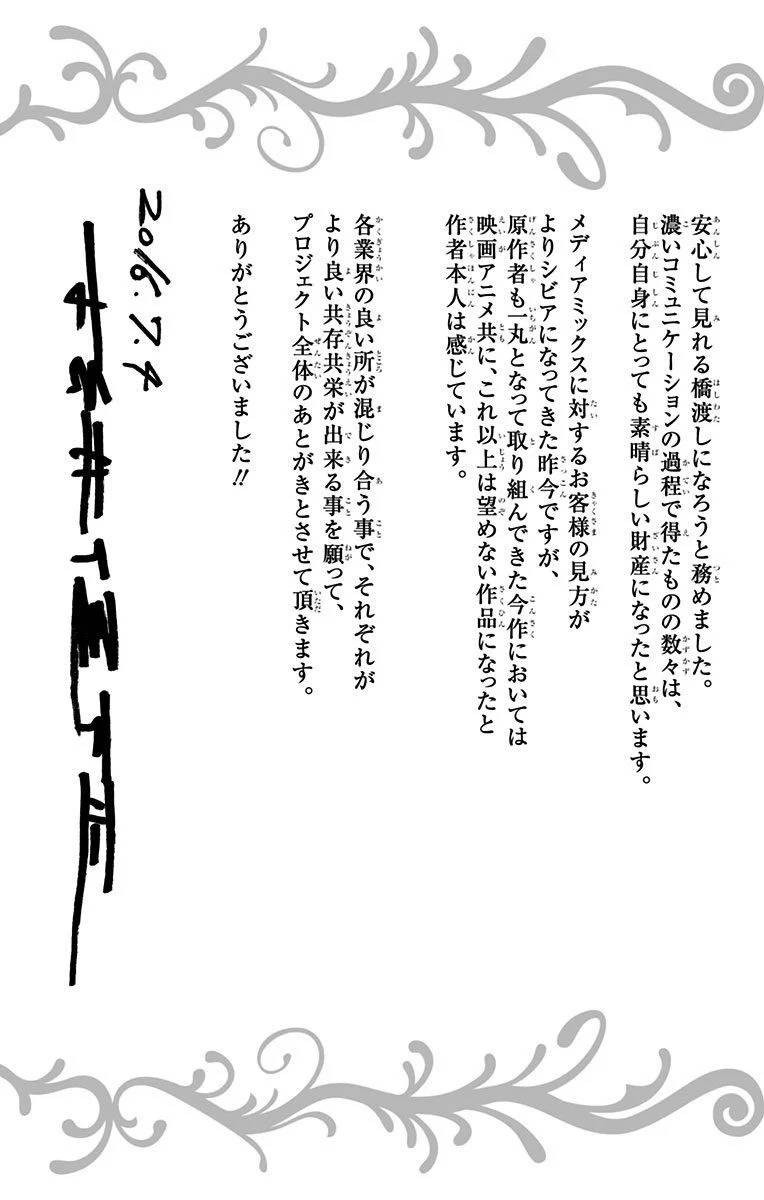 安心して見れる橋渡しになろうと務めました。
濃いコミュニケーションの過程で得たものの数々は、
自分自身にとっても素晴らしい財産になったと思います。
メディアミックスに対するお客様の見方が
よりシビアになってきた昨今ですが、
原作者も一丸となって取り組んできた今作においては
映画アニメ共に、これ以上は望めない作品になったと
作者本人は感じています。
各業界の良い所が混じり合う事で、それぞれが
より良い共存共栄が出来る事を願って、
プロジェクト全体のあとがきとさせて頂きます。
ありがとうございました!!
2016.7.4